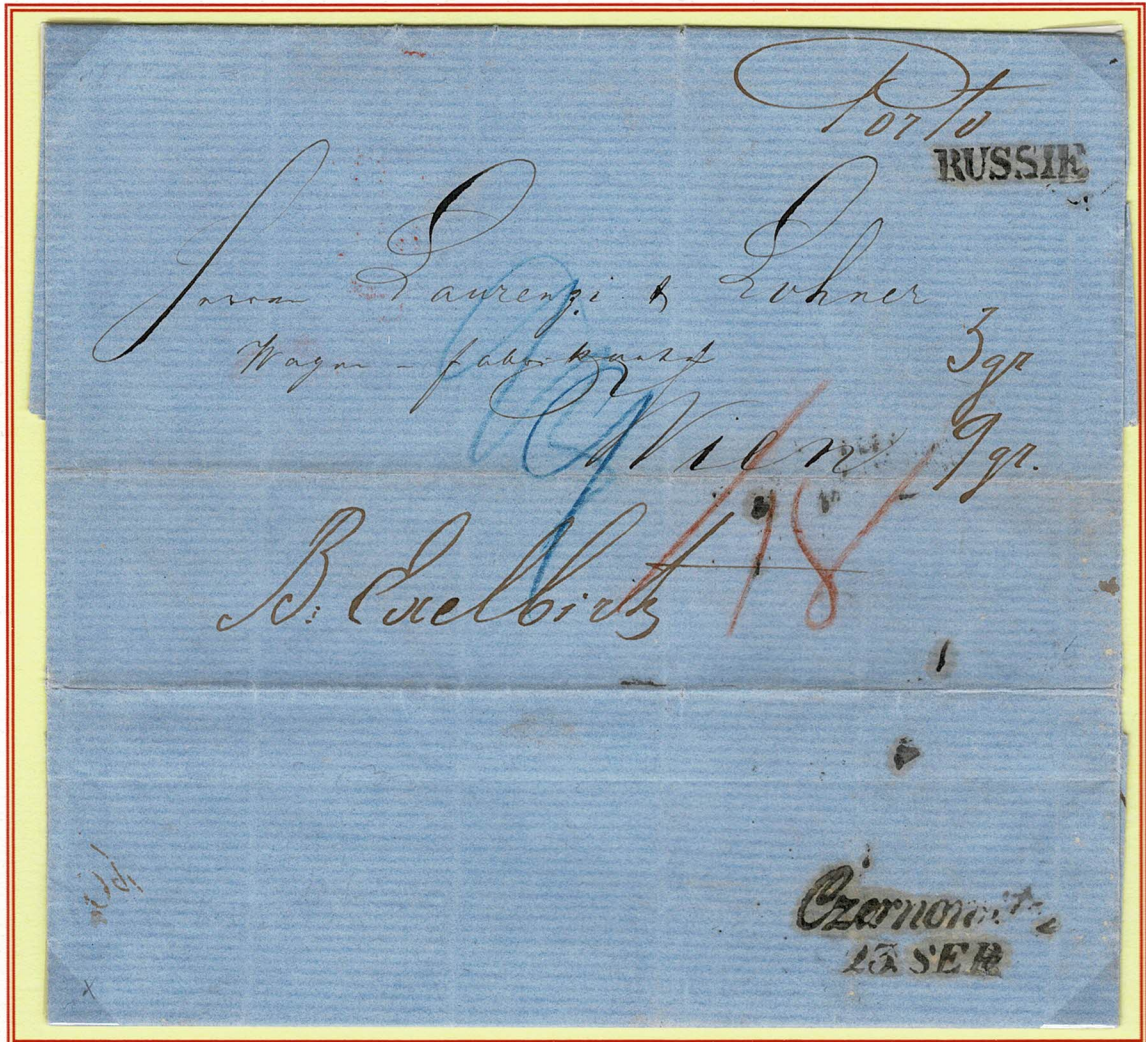 Porto
RUSSIE
Herren Laurenzi & Lohner
Wagen-fabrikanten
3gr
Wien
9gr.
18
B: Exelbirt
Czernowitz
13 SEP